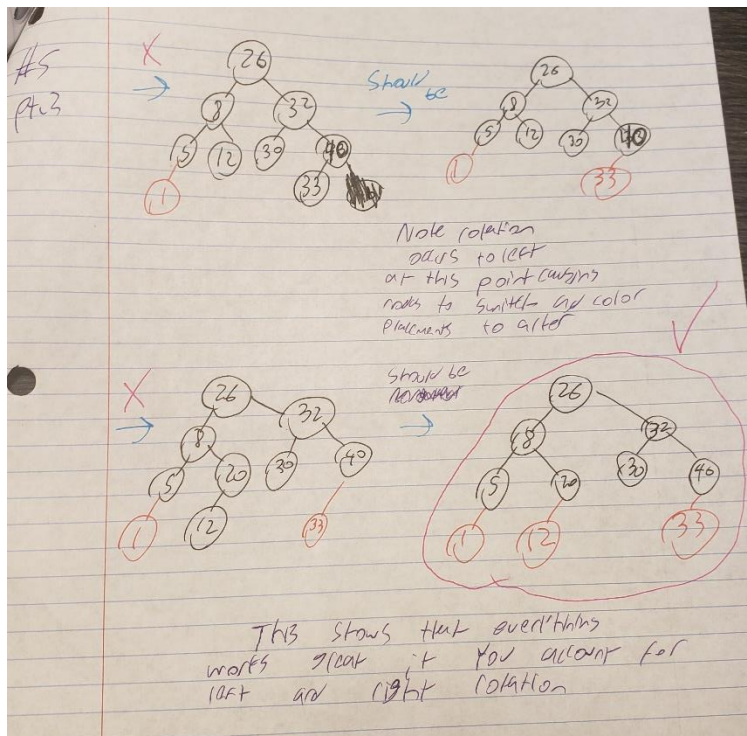 #5
pt.3
X
26
8 32
5 12 30 40
1 33
Should
be
26
8 32
5 12 30 40
1 33
Note rotation
occurs to left
at this point causing
nodes to switch and color
placements to alter
X
26 32
8
5 20 30 40
1 12 33
Should be
26
8 32
5 20 30 40
1 12 33
This shows that everything
works great if you account for
left and right rotation